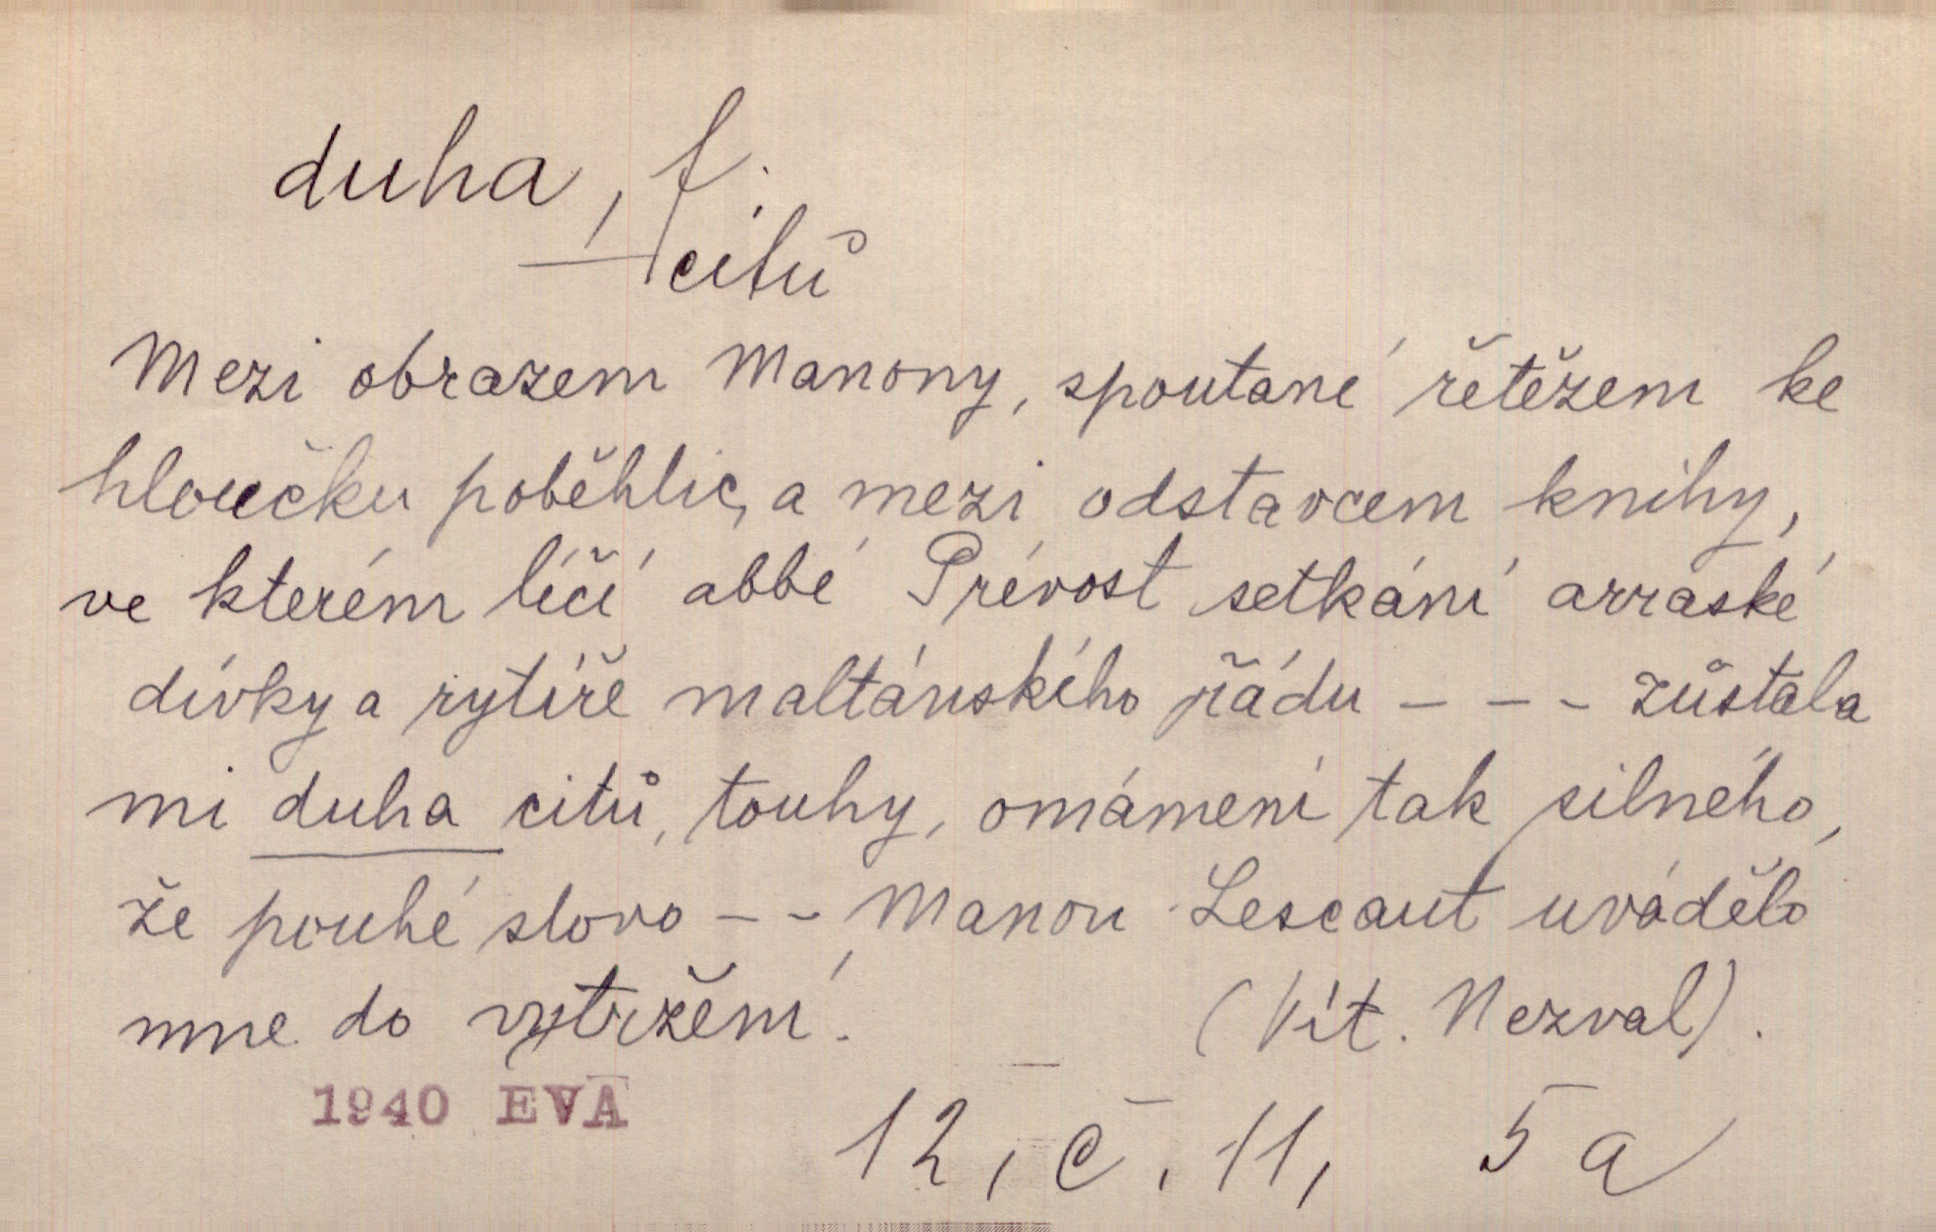 duha, f.
— citů
Mezi obrazem Manony, spoutané řetězem ke
hloučku poběhlic, a mezi odstavcem knihy,
ve kterém líčí abbé Prévost setkání arraské
dívky a rytíře maltánského řádu - - - zůstala
mi duha citů, touhy, omámení tak silného,
že pouhé slovo - - Manon Lescaut uvádělo
mne do vytržení. (Vít. Nezval).
1940 EVA 12, č. 11, 5 a